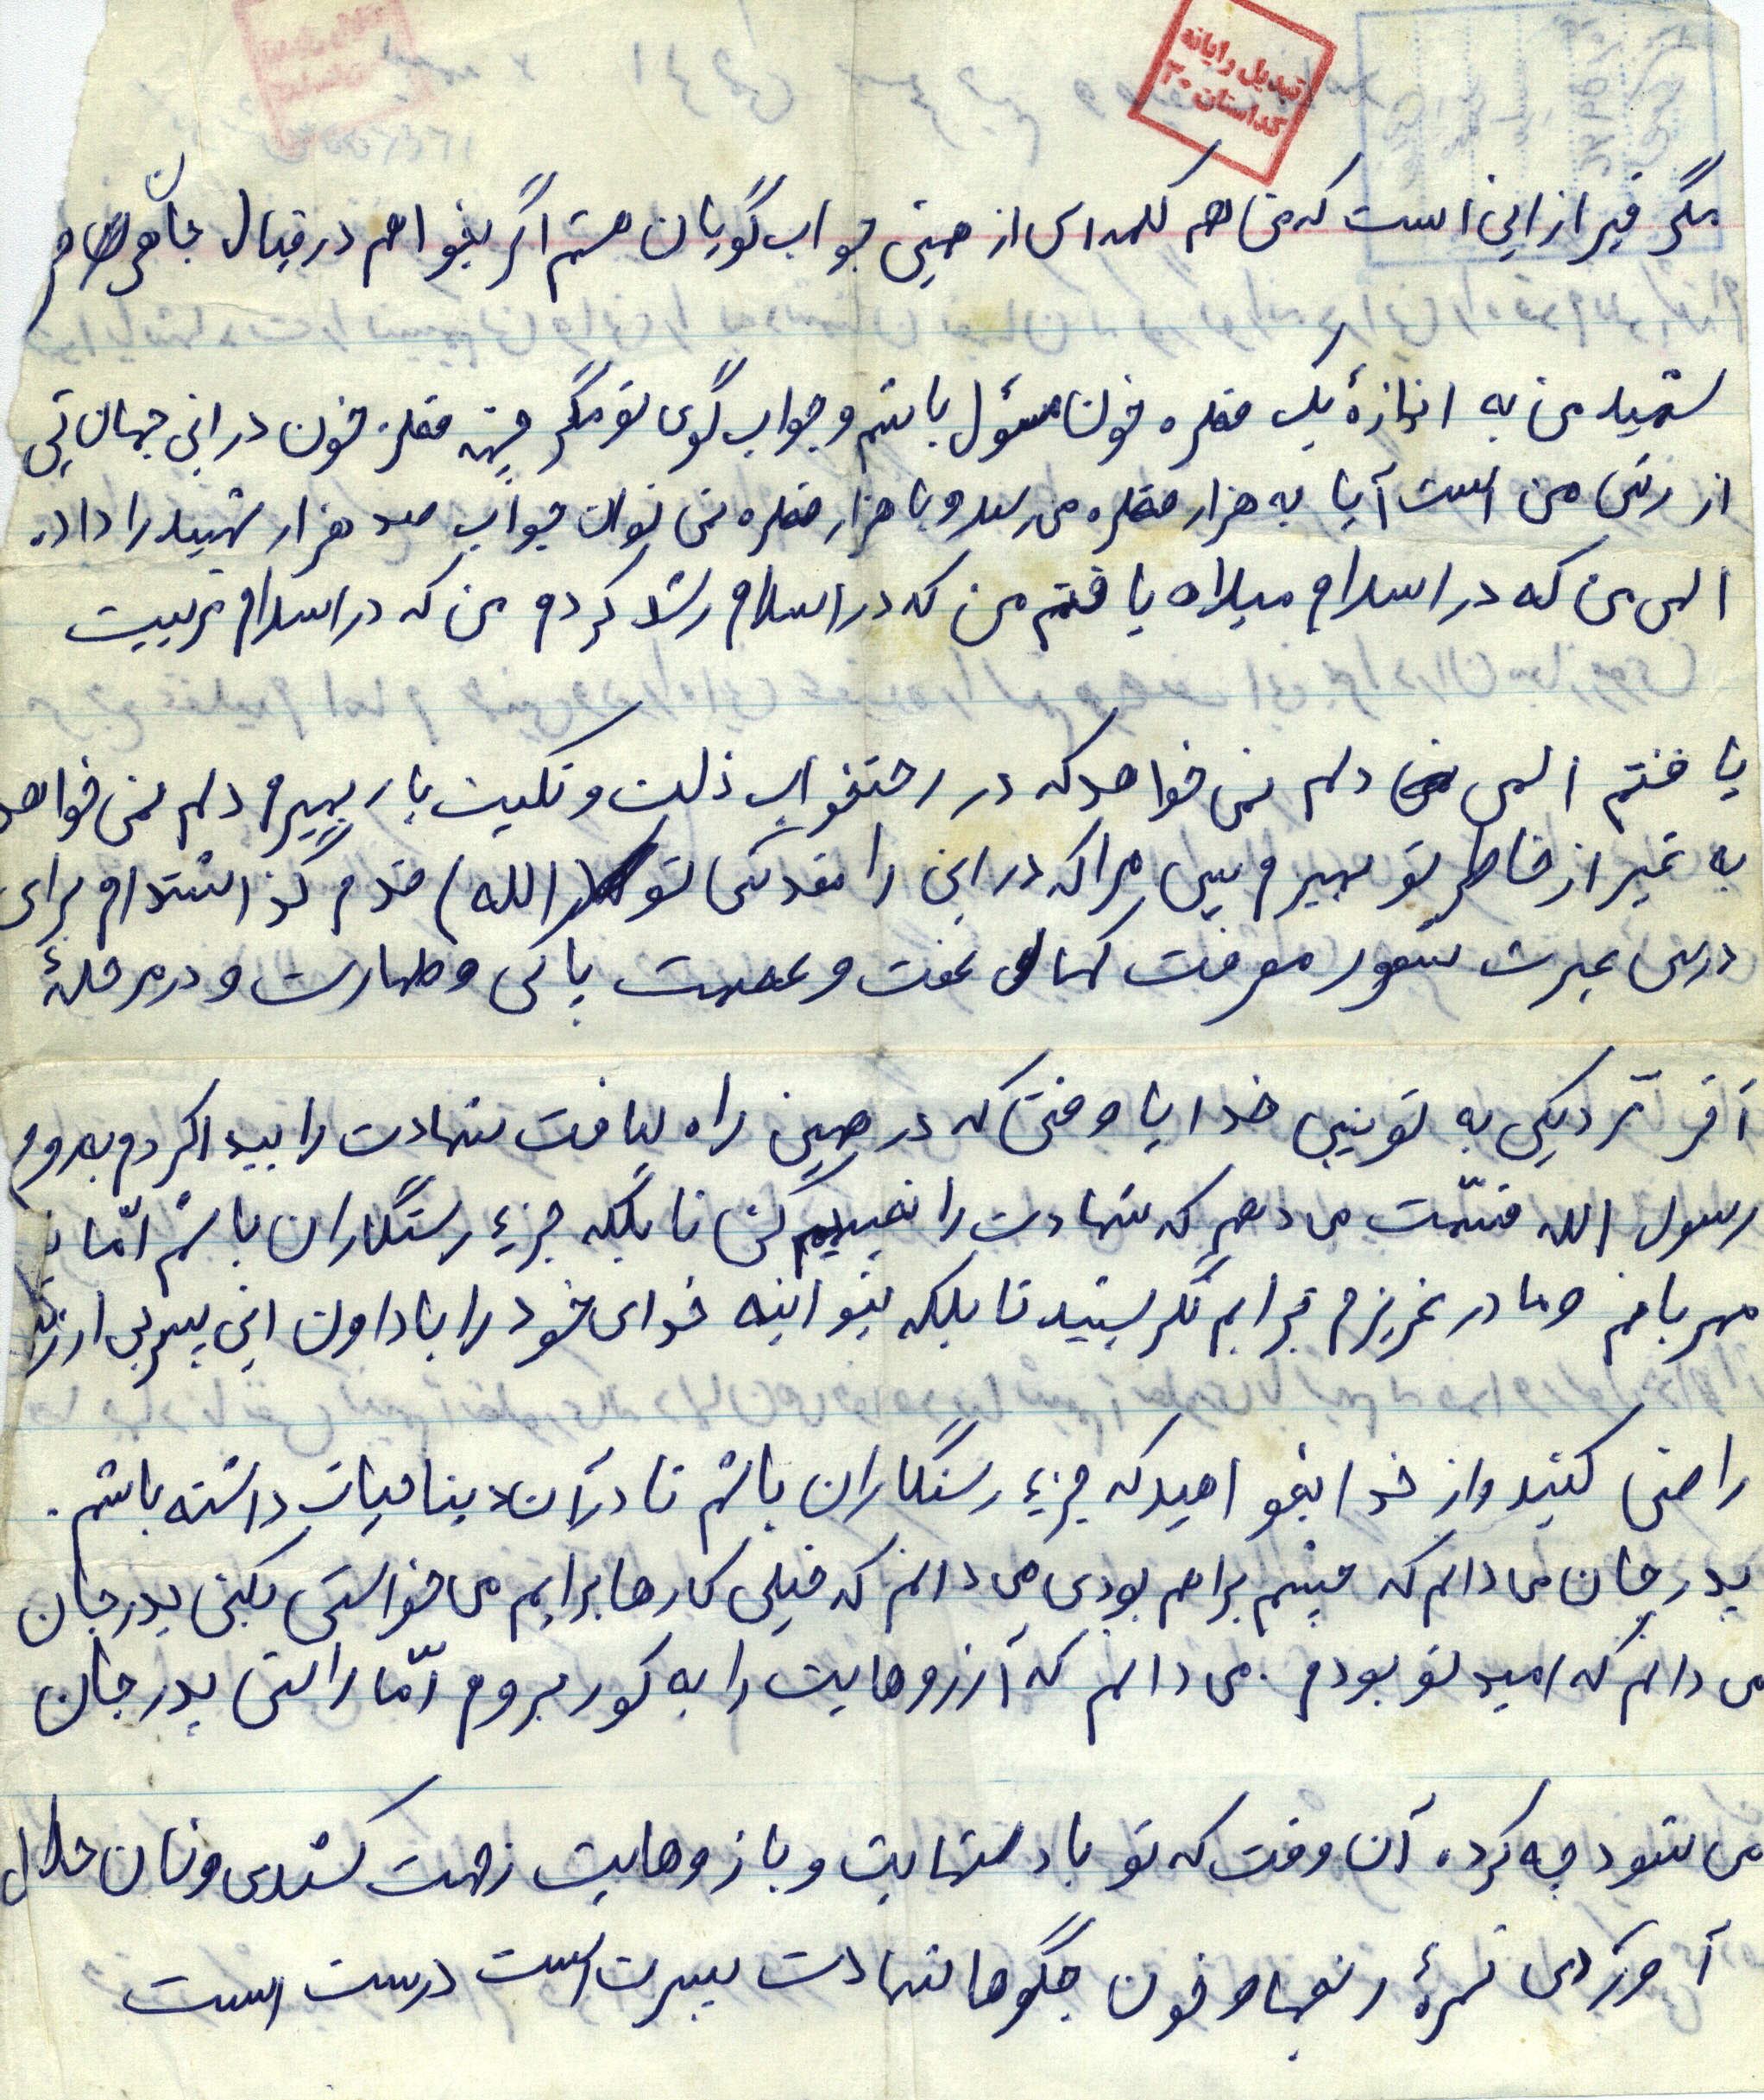 تبدیل رایانه
کد استان ۳۰
مگر غیر از این است که من هم کلمه ای از همین جواب گویان هستم اگر بخواهم در قبال جان
شهید من به اندازهٔ یک قطره خون مسئول باشم و جواب گوی تو مگر چند قطره خون در این جهان
از رنگ من است آیا به هزار قطره می رسد و با هزار قطره نمی توان جواب صد هزار شهید را داد.
الهی من که در اسلام میلاد یافتم من که در اسلام رشد کردم من که در اسلام تربیت
یافتم الهی دلم نمی خواهد که در رختخواب ذلت و نکبت بار بمیرم دلم نمی خواهد
به غیر از خاطر تو بمیرم پس مرا که در این را مقدس تو (الله) قدم گذاشته ام برای
درس عبرت شعور معرفت کمال عفت و عصمت پاکی و طهارت و در مرحلهٔ
آخر نزدیکی به تو ببین خدایا وقتی که در همین راه لیاقت شهادت را پیدا کردم به روح
رسول الله قسمت می دهم که شهادت را نصیبم کن تا بلکه جزء رستگاران باشم امّا
مهربانم و مادر عزیزم برایم نگریید تا بلکه بتوانید خدای خود را با دادن این پسر بی ارزش
راضی کنید و از خدا بخواهید که جزء رستگاران باشم تا در آن دینا حیات داشته باشم.
پدر جان می دانم که چشم براهم بودی می دانم که خیلی کارها برایم می خواستی بکنی پدر جان
می دانم که امید تو بودم. می دانم که آرزوهایت را به گور بروم امّا راستی پدر جان
می شود چه کرد. آن وقت که تو با دستهایت و بازوهایت زحمت کشیدی و نان حلال
آوردی ثمرهٔ رنجها و خون جگرها شهادت پسرت است درست است